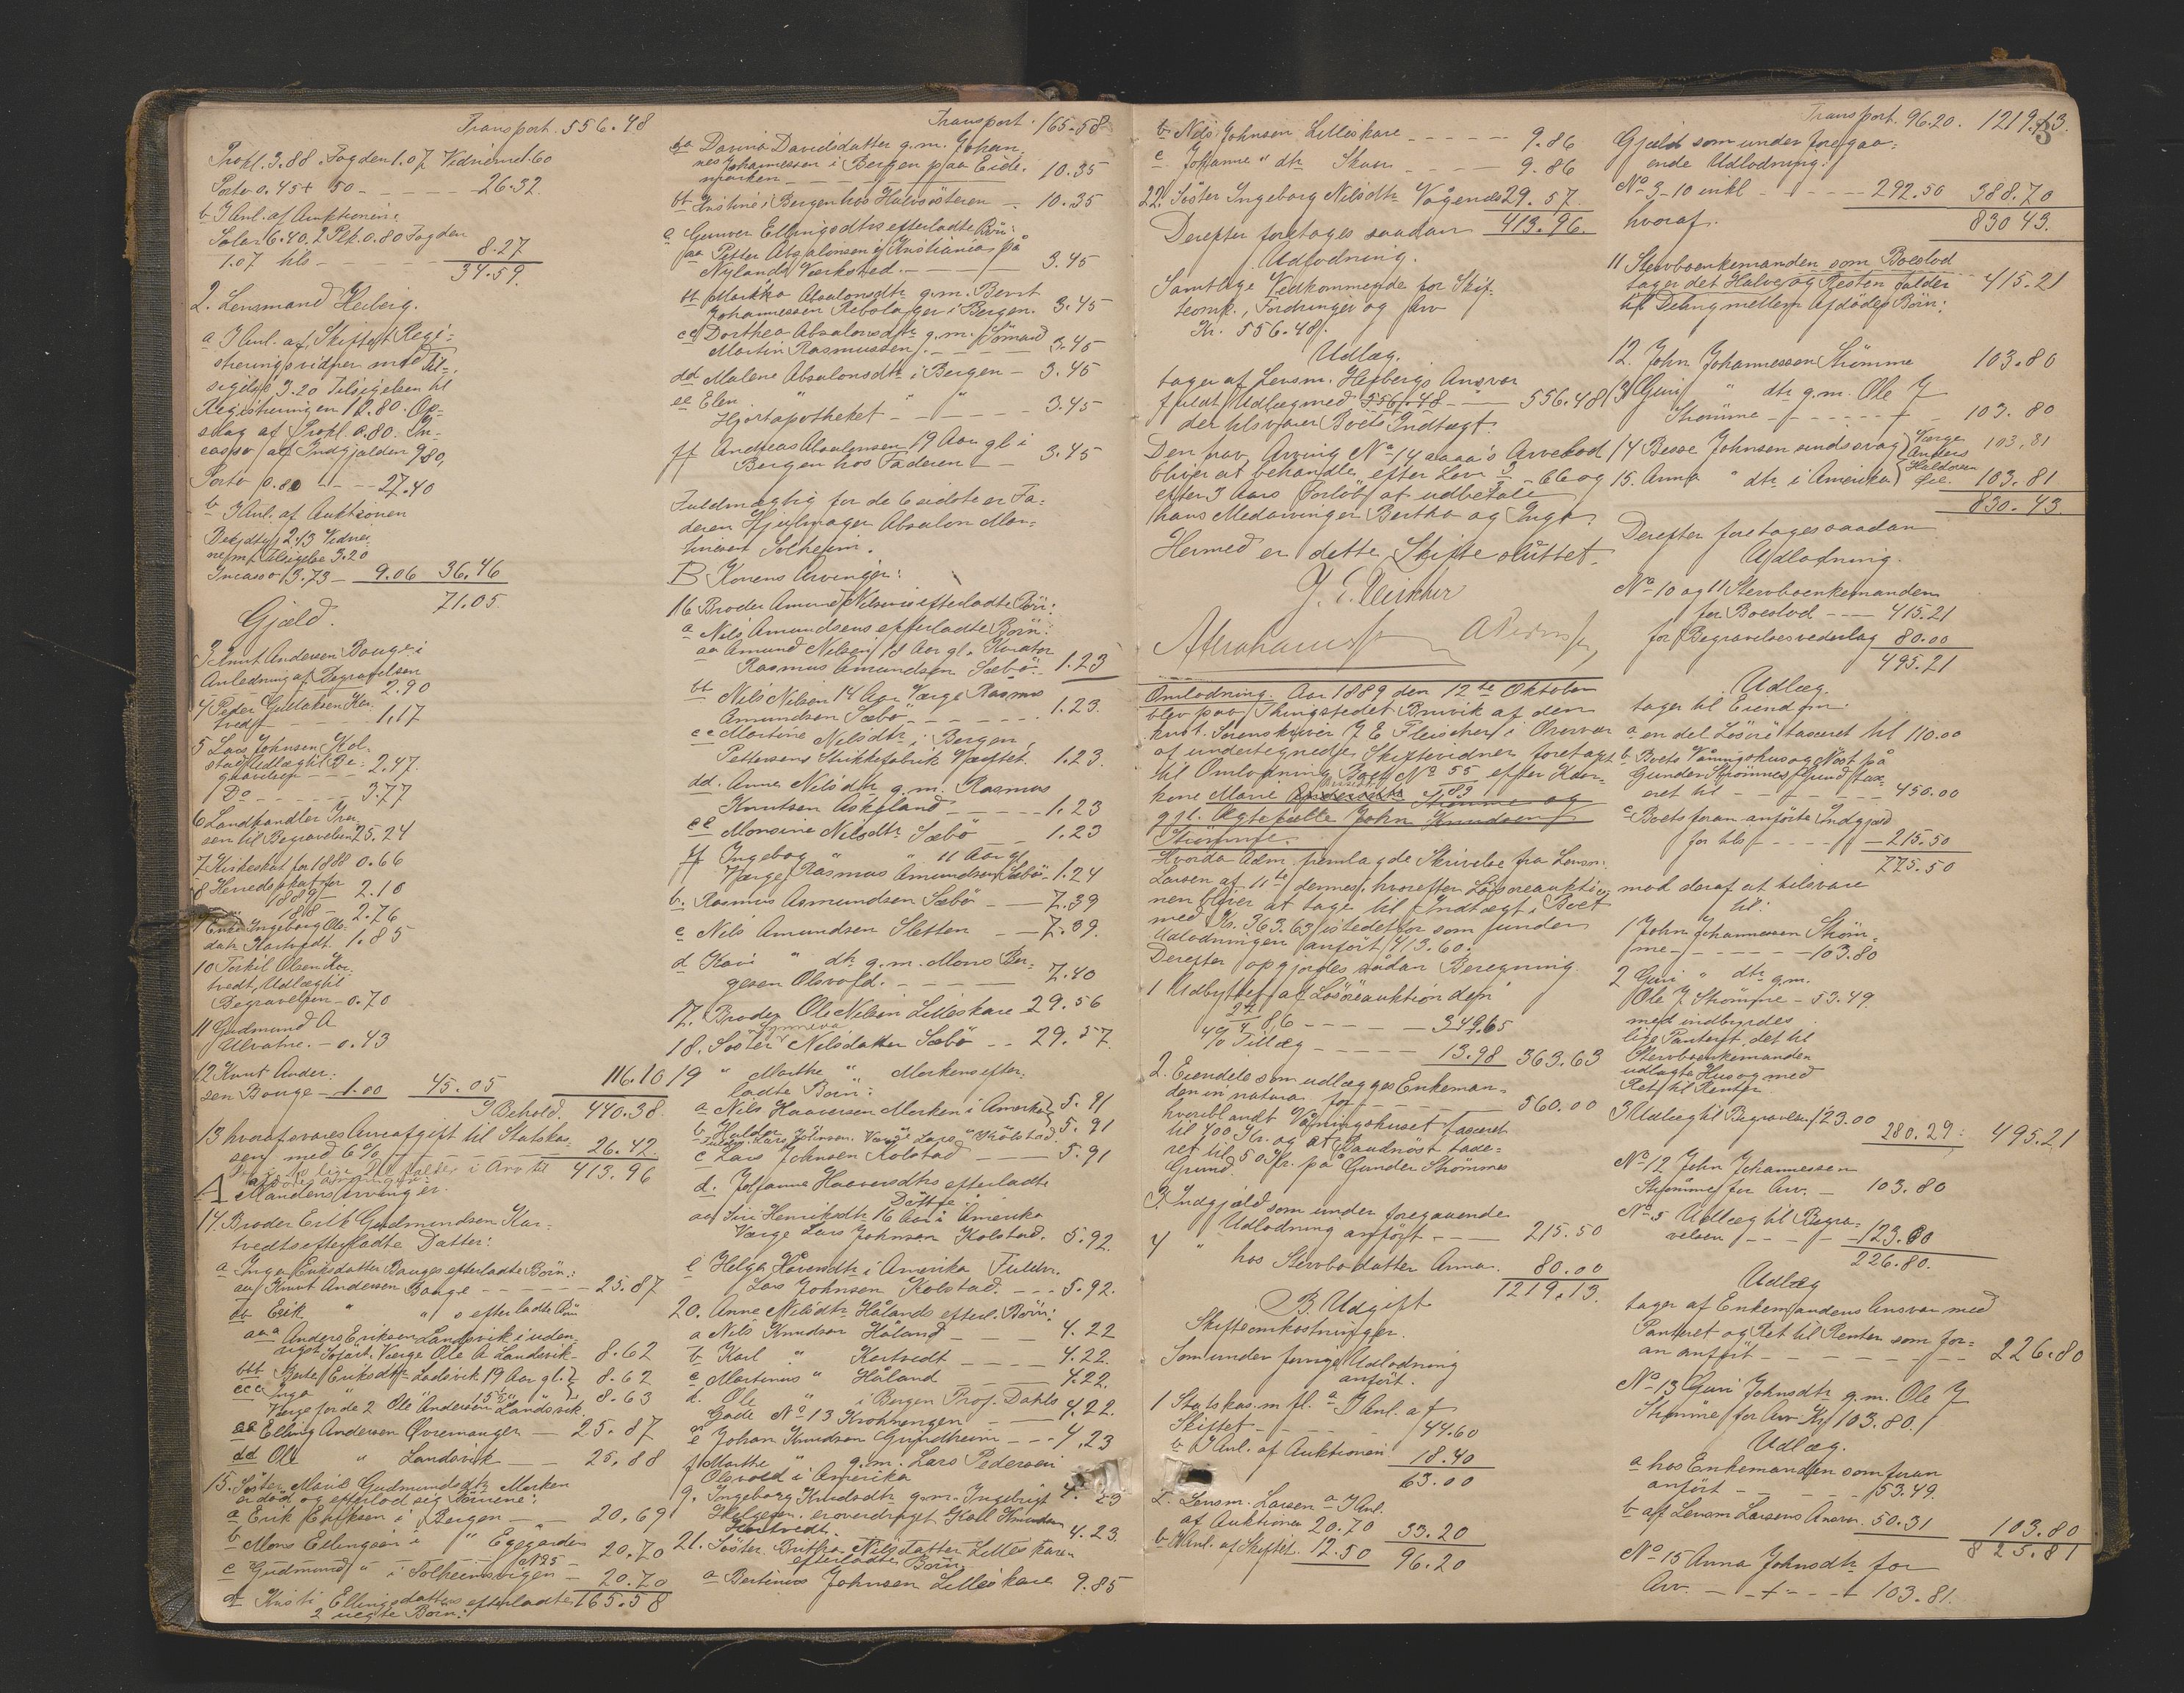 Transport 556.48
Prokl. 3.88 Fogden 1.07 Vidnerne 1.60
Porto 0.45 + 50 - 26.32
b I Anl. af Auktionen:
Salær 6.40, 2 Plk. 0.80 Fogden
1.07 tils - 8.27
34.59.
2. Lensmand Heiberg.
a I Anl. af Skiftet Regi-
streringsvidner med Til-
sigelse 3.20 Tilsigelsen til
Registreringen 12.80. Op-
slag af Prokl. 0.80. In-
casso af Indgjælden 9.80,
Porto 0.80 - 27.40
b I Anl. af Auktionen
nem. Tilsigelse 3.20
Incasso 13.73 - 9.06 36.46
71.05.
Gjæld.
3 Knut Andersen Bauge i
Anledning af Begravelsen
2.90
4 Peder Gullaksen Kar-
tvedt 1.17
5 Lars Johnsen Kol-
stad Udlæg til Be-
gravelsen - 2.47.
Do - 3.77
6 Landhandler Iver-
sen til Begravelsen 25.24
7 Kirkeskat for 1888 0.66
8 Herredsskat for
1889 - 2.10
1888 - 2.76
9 Enke Ingeborg Ols-
datr. Kartvedt. 1.85
10 Torkil Olsen Kar-
tvedt, Udlæg til
Begravelsen - 0.70
11 Gudmund A
Ulvatne. - 0.43
12 Knut Ander-
sen Bauge - 1.00 45.05 116.10
I Behold. 440.38
13 hvoraf svares Arveafgift til Statskas-
sen med 6% - 26.42.
413.96
A Mandens Arvinger.
14. Broder Erik Gudmundsen Kar-
tvedts efterladte Datter:
a Inger Eriksdatter Bauges efterladte Börn:
aa Knut Andersen Bauge - 25.87
bb Erik " " s efterladte Börn
aaa Anders Eriksen Landsvik i uden-
rigst Sofart. Værge Ole A Landsvik - 8.62
bbb Berte Eriksdtr Landsvik 19 Aar gl. 8.62
ccc Inga " 15½ " " 8.63
Værge for de 2 Ole Andersen Landsvik.
cc Elling Andersen Övremanger - 25.87
dd Ole " Landsvik - 25.88
15. Söster Maris Gudmundsdtr Merken
er död og efterlod sig Börnene:
a Erik Ellingsen i Bergen - 20.69
b Mons Ellingsen i " Eggegarden 20.70
No 25
c Gudmund " i Solheimsvigen - 20.70
d Kristi Ellingsdatters efterladte 165.58
2 uegte Börn:
Transport. 165.58
aa Davina Davidsdatter g.m. Johan-
nes Johannessen i Bergen paa Eide-
marken - 10.35
bb Kristine i Bergen hos Halvsösteren - 10.35
e Gunver Ellingsdtrs efterladte Börn:
aa Petter Absalonsen i Kristiania på
Nylands Værksted. - 3.45
bb Marikka Absalonsdtr g.m. Berent
Johannessen Rebslager i Bergen. 3.45
cc Dorthea Absalonsdtr g.m. Sömand
Martin Rasmussen. - 3.45
dd Malene Absalonsdtr i Bergen - 3.45
ee Elen " " "
Hjortapotheket - 3.45
ff Andreas Absalonsen 19 Aar gl i
Bergen hos Faderen - 3.45
Fuldmægtig for de 6 sidste er Fa-
deren Hjulmager Absalon Mar-
tinsen Solheim.
B Konens Arvinger:
16 Broder Amund Nilsens efterladte Börn:
a Nils Amundsens efterladte Börn:
aa Amund Nilsen 18 Aar gl. Kurator
Rasmus Amundsen Sæbö - 1.23
bb Nils Nilsen 14 Aar Værge Rasmus
Amundsen Sæbö - 1.23.
cc Martine Nilsdtr i Bergen,
Pettersens Strikkefabrik Hæftet. 1.23.
dd. Anna Nilsdtr g.m. Rasmus
Knutsen Askeland - 1.23
ee Monsine Nilsdtr Sæbö 1.23
ff Ingebog " " 11 Aar gl
Værge Rasmus Amundsen Sæbö - 1.24
b. Rasmus Amundsen Sæbö - 7.39
c Nils Amundsen Sletten - 7.39.
d Kari " dtr g.m. Mons Ber-
gesen Olsvold. - 7.40
17. Broder Ole Nilsen Lilleskare 29.56
18. Söster Synneva Nilsdatter Sæbö - 29.57.
19 " Marthe " Merkens efter-
ladte Börn:
a Nils Haaversen Merken i Amerika 5.91
b Haldor " i " 5.91
c Lars Johnsen Kolstad - 5.91
d. Johanne Haaversdtrs efterladte
Datter:
aa Siri Henriksdtr 16 Aar i Amerika
Værge Lars Johnsen Kolstad. 5.92.
e Helga Haversdtr i Amerika Fuldm.
Lars Johnsen Kolstad. - 5.92.
20. Anne Nilsdtr Hålands efterl. Börn:
a Nils Knudsen Håland - 4.22
b Karl " Kartvedt - 4.22.
c Martinus " Håland - 4.22.
d. Ole " i Bergen Prof. Dahls
Gade No 13 Krohnengen - 4.22.
e Johan Knudsen Grindheim - 4.23
f Marthe " g.m. Lars Pedersen
Olsvold i Amerika 4.23
g. Ingeborg Knudsdtr g.m. Ingebrigt
Helgesen. er overdraget Karl Knudsen
Kartvedt. 4.23
21. Söster Britha Nilsdatter Lilleskares
efterladte Börn
a Bertinus Johnsen Lilleskare 9.85
b Nils Johnsen Lilleskare - 9.86
c Johanne " dtr Skaar - 9.86
22. Söster Ingeborg Nilsdtr Vågenes 29.57.
Derefter foretages saadan 413.96.
Udlodning.
Samtlige Vedkommende for Skif-
teomk., Fordringer og Arv
Kr. 556.48.
Udlæg.
tager af Lensm. Heibergs Ansvar
fuldt Udlæg med 556.48 - 556.48
der tilsvarer Boets Indtægt.
Den frav. Arving No 14 aaaa's Arvelod
bliver at behandle efter Lov - 66 og
efter 3 Aars Forløb at udbetale
hans Medarvinger Bertha og Inga.
Hermed er dette Skifte sluttet.
Omlodning. Aar 1889 den 12te Oktober
blev paa Thingstedet Bruvik af den
konst. Sorenskriver J E Fleischer i Overvær
af undertegnede Skiftevidner foretaget
til Omlodning Boet No 55 efter Kaar-
kone Marie Strømme og
gjl. Ægtefælle John Knudsen
Strömme.
Hvorda Adm. fremlagde Skrivelse fra Lensm.
Larsen af 11te dennes, hvorefter Lösöreauktio-
nen bliver at tage til Indtægt i Boet
med Kr. 363.63 istedetfor som funden
Udlodningen anført 413.60.
Derefter opgjordes sådan Beregning
1 Udbyttet af Lösöreauktionen den
27/7 86 - 349.65
4% Tillæg - 13.98 363.63
2. Eiendele som udlægges Enkeman-
den in natura for - 560.00
hvoriblandt Våningshuset taxeret
til 400 Kr. og et Baadnöst taxe-
ret til 50 Kr. på Gunder Strömmes
Grund.
3. Indgjæld som under foregaaende
Udlodning anført - 215.50
4 " hos Stervbodatter Anna. 80.00
1219.13.
B. Udgift
Skifteomkostninger.
Som under forrige Udlodning
anført.
1 Statskas. m fl. a I Anl. af
Skiftet - 44.60
b I Anl. af Auktionen 18.40
63.00
2. Lensm. Larsen a I Anl.
af Auktionen 20.70 33.20
b I Anl. af Skiftet. 12.50 96.20
Transport. 96.20. 1219.13.
Gjæld som under foregaa-
ende Udlodning:
No 3-10 inkl - 292.50 388.70
hvoraf. 830 43.
11 Stervboenkemanden som Boeslod
tager det Halve og Resten falder 415.21
til Deling mellem Afdödes Börn:
12. John Johannessen Strömme 103.80
13 Guri " dtr g.m. Ole J
Strömme - 103.80
14 Besse Johnsen sindssvag Værge 103.81
Anders
Haldorsen
15. Anna " dtr i Amerika 103.81
830.43.
Derefter foretages saadan
Udlodning.
No 10 og 11 Stervboenkemanden
for Boeslod - 415.21
for Begravelsesvederlag 80.00
495.21
Udlæg.
tager til Eiendom.
a en del Lösöre taxeret til 110.00
b. Boets Våningshus og Nöst på
Gunder Strømmes Grund tax-
eret til - 450.00
c Boets foran anførte Indgjæld
for tils - 215.50
775.50
mod deraf at tilsvare
til:
1 John Johannessen Ström-
me - 103.80
2 Guri " dtr g.m.
Ole J Strömme - 53.49.
med indbyrdes
lige Panteret, det til
Stervboenkemanden
udlagte Hus og med
Ret til Renter
3 Udlæg til Begravelse 123.00
280.29: 495.21
No 12 John Johannessen
Strömme for Arv. - 103.80
No 5 Udlæg til Begra-
velsen - 123.00
226.80.
Udlæg
tager af Enkemandens Ansvar med
Panteret og Ret til Renter som for-
an anført - 226.80
No 13 Guri Johnsdtr g.m. Ole J
Strömme for Arv Kr 103.80.
Udlæg.
a hos Enkemanden som foran
anført - 53.49.
b af Lensm Larsens Ansvar. 50.31 103.80
825.81
No 15 Anna Johnsdtr for
Arv. - 103.81.